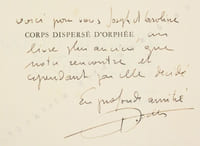 voici pour vous Joseph et Caroline
CORPS DISPERSÉ D'ORPHÉE un
livre plus ancien que
notre rencontre et
cependant par elle décidé
En profonde amitié